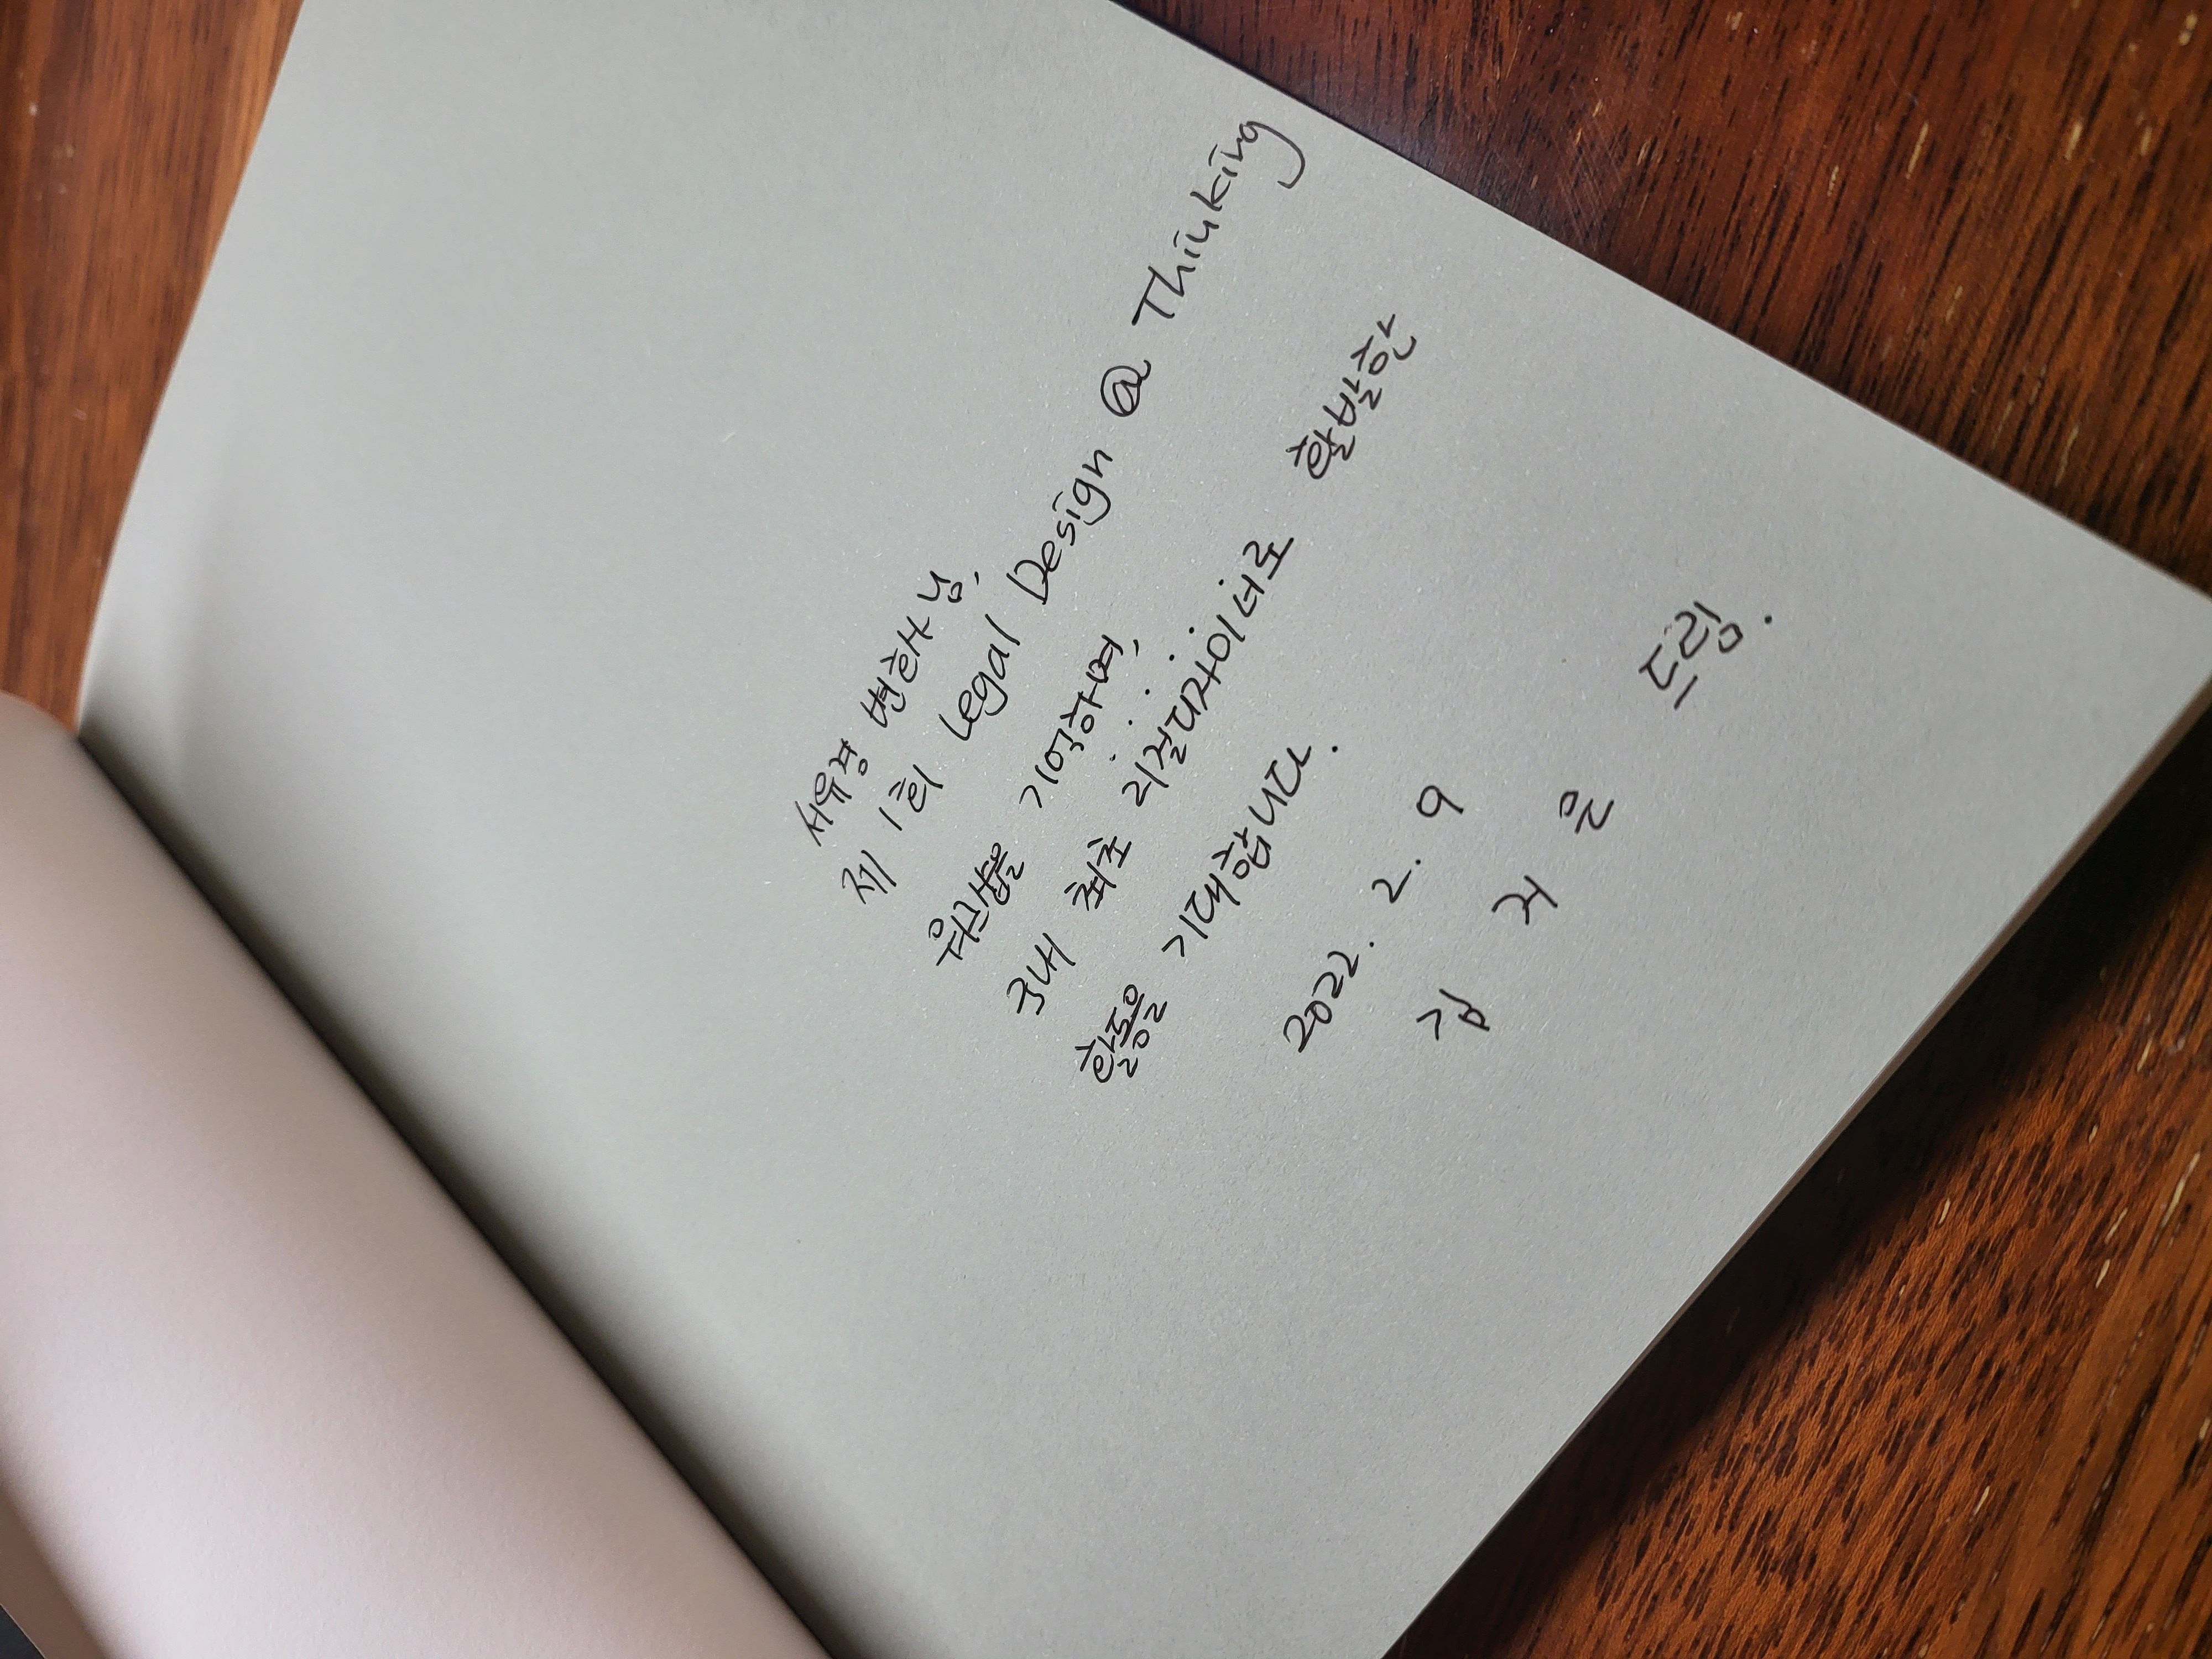 서유경 변호사님,
제 1회 Legal Design @ Thinking
워크샵을 기억하며,
국내 최초 리걸디자이너로 활발한
활동을 기대합니다.
2022. 2. 9
김 저 은 드림.